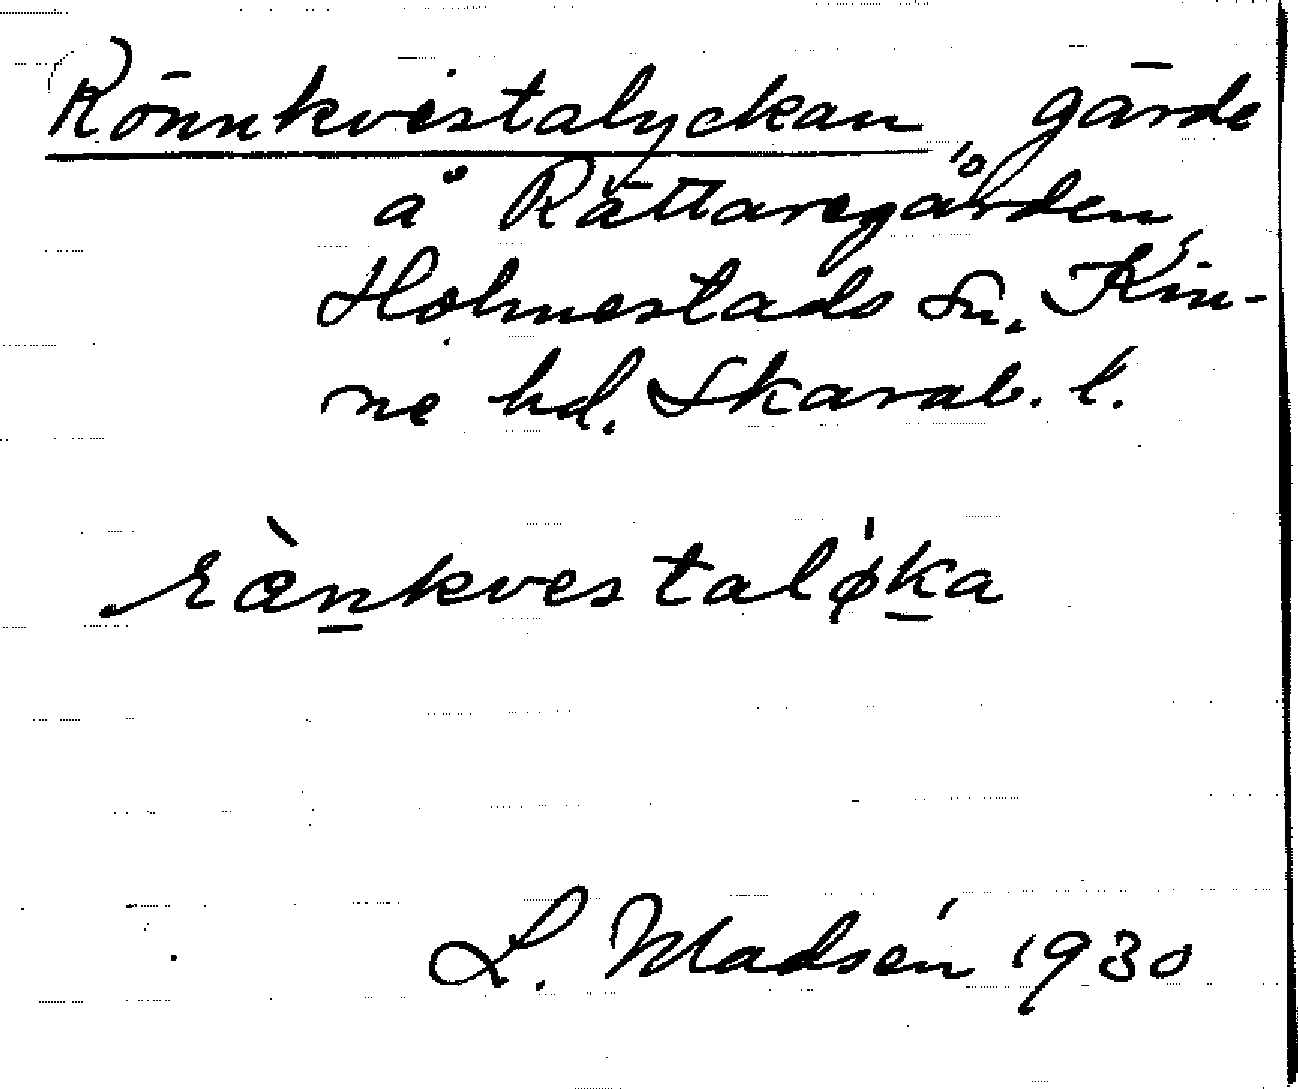 Rönnkvistalyckan, gärde
å Rättaregården,
Holmestads sn. Kin-
ne hd. Skarab. l.
ræ̀nkvestaløka
L. Madsén 1930